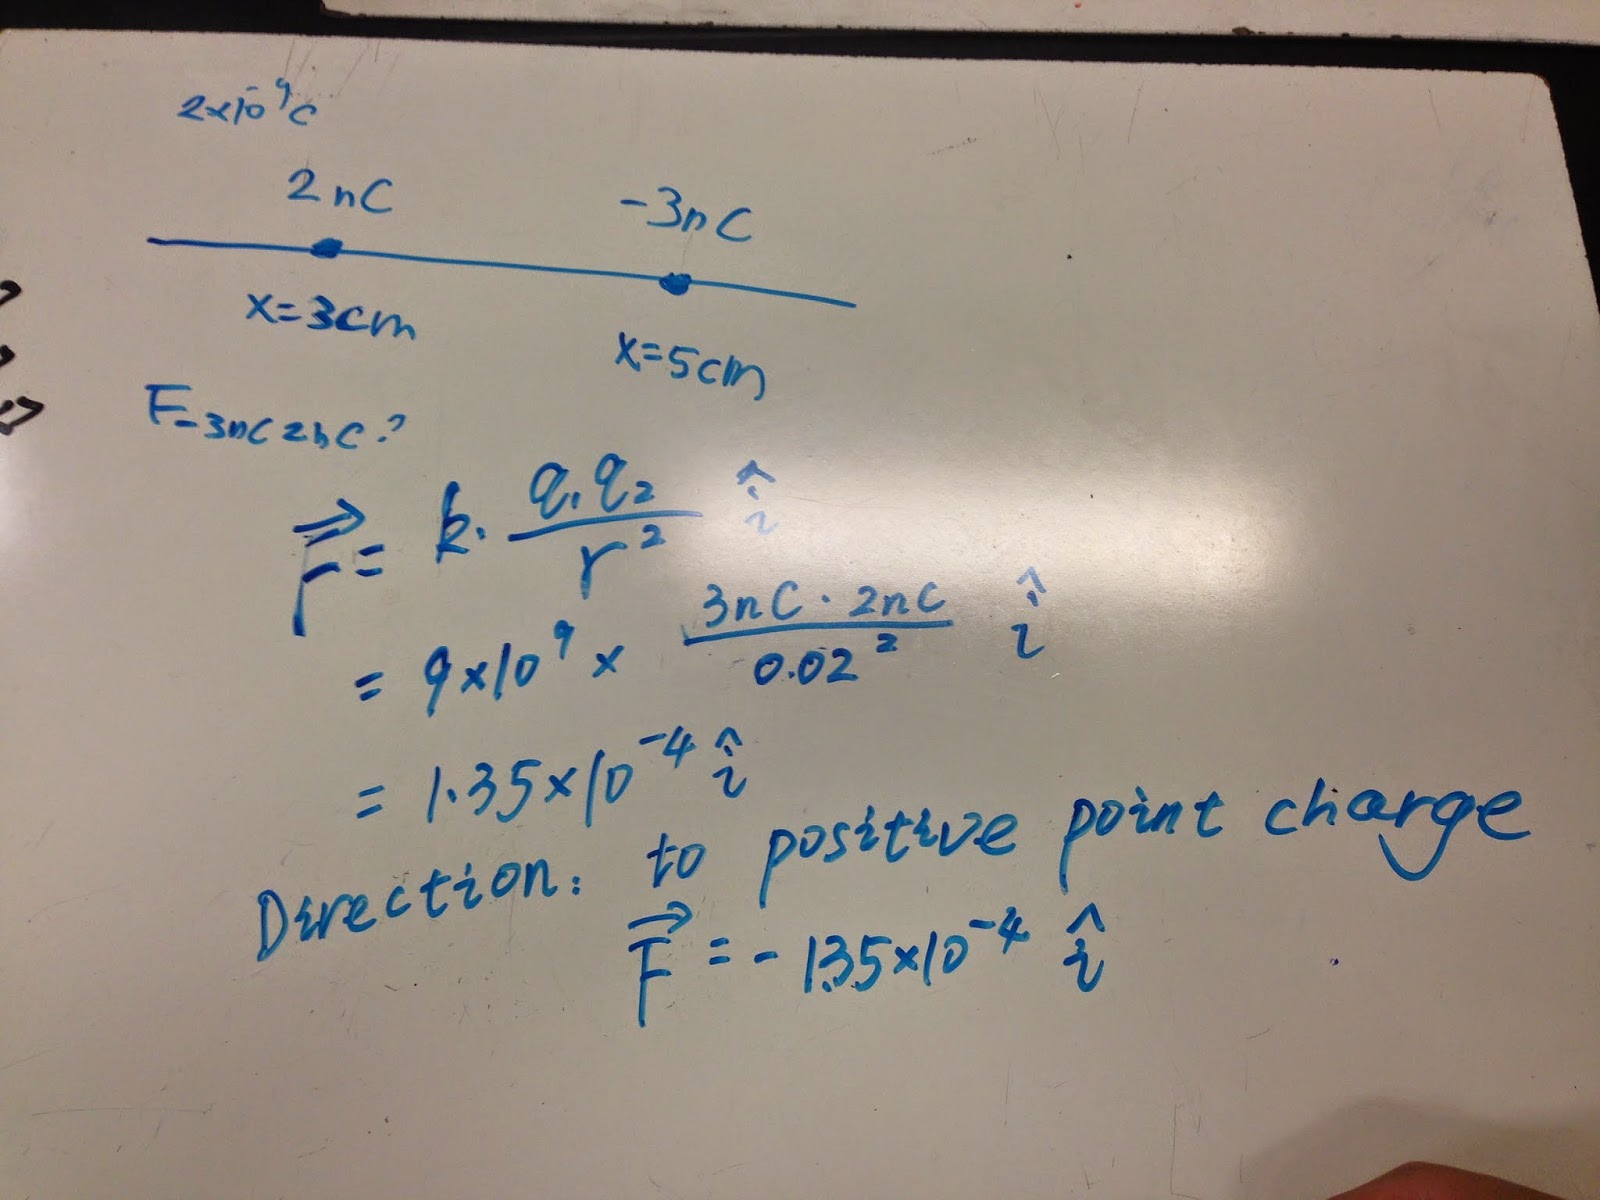 2×10⁻⁹C
2nC
-3nC
x=3cm
x=5cm
F-3nC2nC?
F⃗ = k· q₁q₂/r² î
= 9×10⁹ × 3nC·2nC/0.02² î
= 1.35×10⁻⁴ î
Direction: to positive point charge
F⃗ = -1.35×10⁻⁴ î